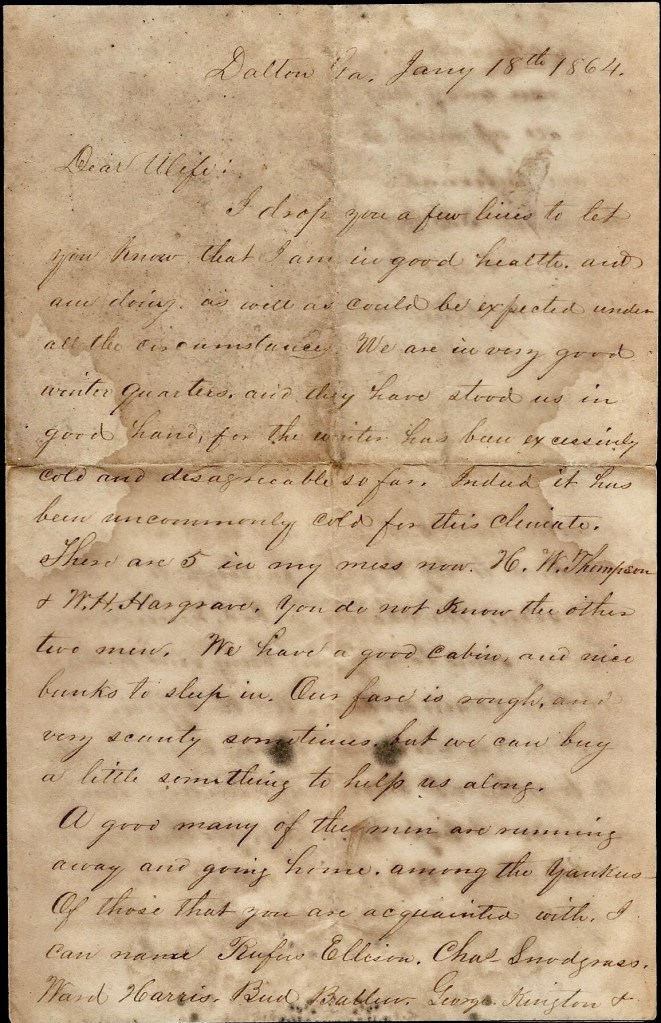 Dalton Ga. Jany 18th 1864.
Dear Wife:
I drop you a few lines to let
you know that I am in good health. and
am doing. as well as could be expected under
all the circumstances. We are in very good
winter quarters. and they have stood us in
good hand, for the winter has been excessively
cold and disagreeable so far. Indeed it has
been uncommonly cold for this climate.
There are 5 in my mess now. H. W. Thompson
& W. H. Hargrave. You do not know the other
two men. We have a good cabin, and nice
bunks to sleep in. Our fare is rough, and
very scanty sometimes. but we can buy
a little something to help us along.
A good many of the men are running
away and going home. among the Yankees
Of those that you are acquainted with. I
can name Rufus Ellison. Chas Snodgrass.
Ward Harris. Bud George &